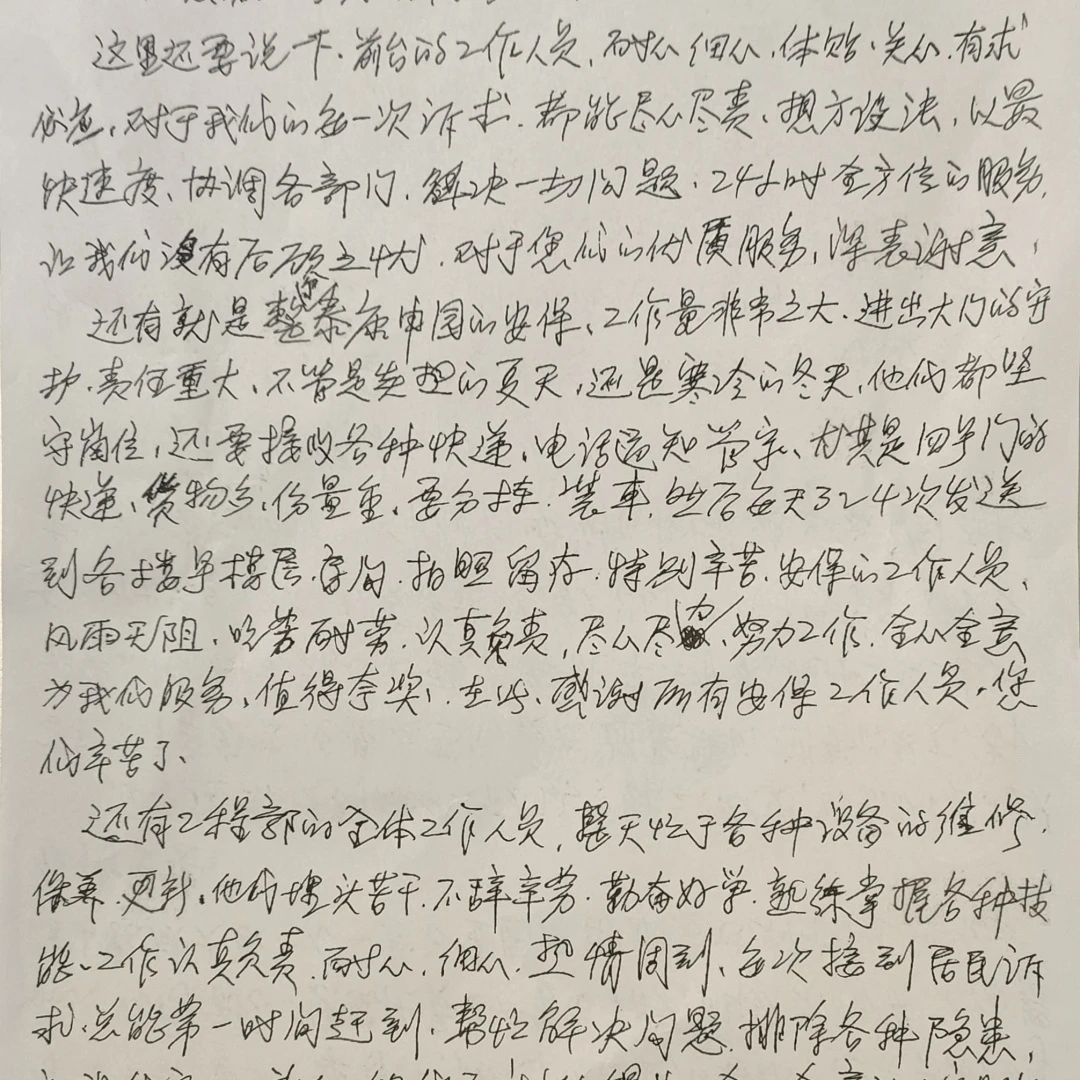 这里还要说一下、前台的工作人员，耐心细心，体贴、关心、有求
必应，对于我们的每一次诉求、都能尽心尽责、想方设法，以最
快速度、协调各部门、解决一切问题、24小时全方位的服务，
让我们没有后顾之忧，对于您们的优质服务，深表谢意，
还有就是泰康申园的安保、工作量非常之大、进出大门的守
护、责任重大、不管是炎热的夏天，还是寒冷的冬天，他们都坚
守岗位，还要接收各种快递，电话通知管家、尤其是四号门的
快递、货物多，份量重，要分拣、装车，然后每天3～4次发送
到各楼号楼层、房间、拍照留存、特别辛苦、安保的工作人员、
风雨无阻，吃苦耐劳、认真负责，尽心尽力、努力工作、全心全意
为我们服务、值得夸奖、在此、感谢所有安保工作人员，您
们辛苦了、
还有工程部的全体工作人员，整天忙于各种设备的维修、
保养、更新，他们埋头苦干、不辞辛劳、勤奋好学、熟练掌握各种技
能、工作认真负责、耐心、细心、热情周到、每次接到居民诉
求、总能第一时间赶到、帮忙解决问题、排除各种隐患，